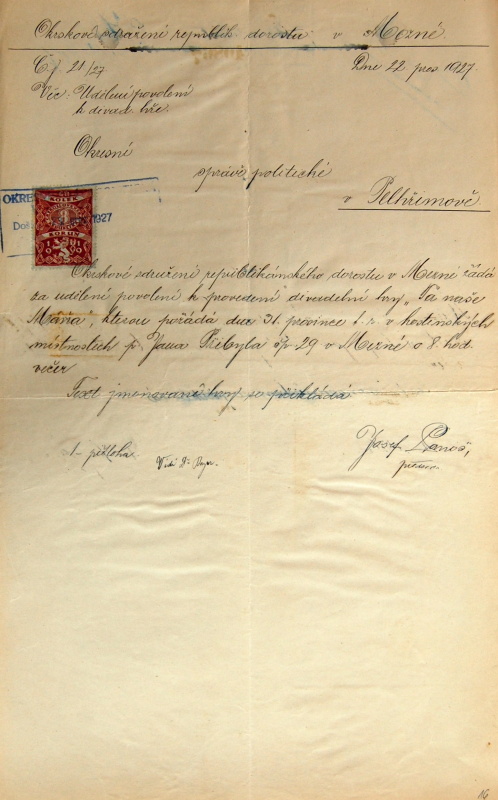 Okrskové sdružení republik. dorostu v Mezné
Č.j. 21/27
Dne 22. pros 1927.
Věc: Udělení povolení
k divad. hře.
Okresní
správě politické
v Pelhřimově
OKRE
KOLEK
KORUN
1927
Okrskové sdružení republikánského dorostu v Mezné žádá
za udělení povolení k provedení divadelní hry „Ta naše
Máňa", kterou pořádá dne 31. prosince t.r. v hostinských
místnostech p. Jana Přibyla čp. 29 v Mezné o 8 hod
večer
Text jmenované hry se přikládá.
1 příloha.
Josef
předseda.
16